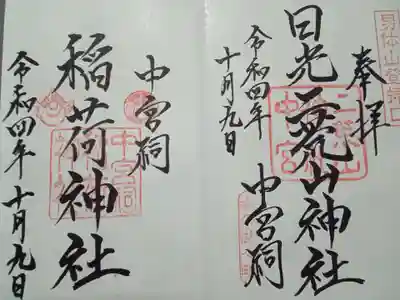 奉拝
日光二荒山神社
中宮祠
令和四年
十月九日
中宮祠
稲荷神社
令和四年十月九日